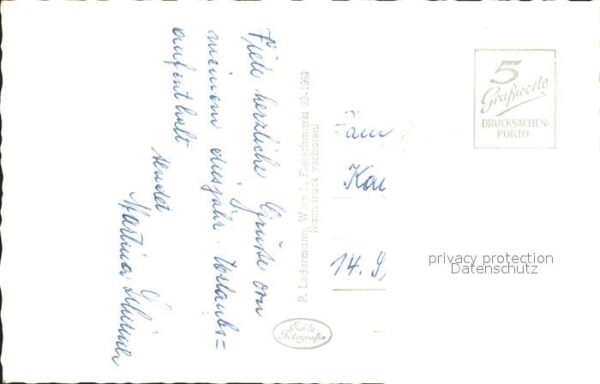 Viele herzliche Grüße von
meinem diesjähr. Urlaubs=
aufenthalt
sendet
Martina
P. Ledermann, Wien I, Fleischmarkt 20-1969
Nachdruck verboten
Echte
Fotografie
5
Grußworte
DRUCKSACHEN-
PORTO
Fam
Kar
14. S
privacy protection
Datenschutz